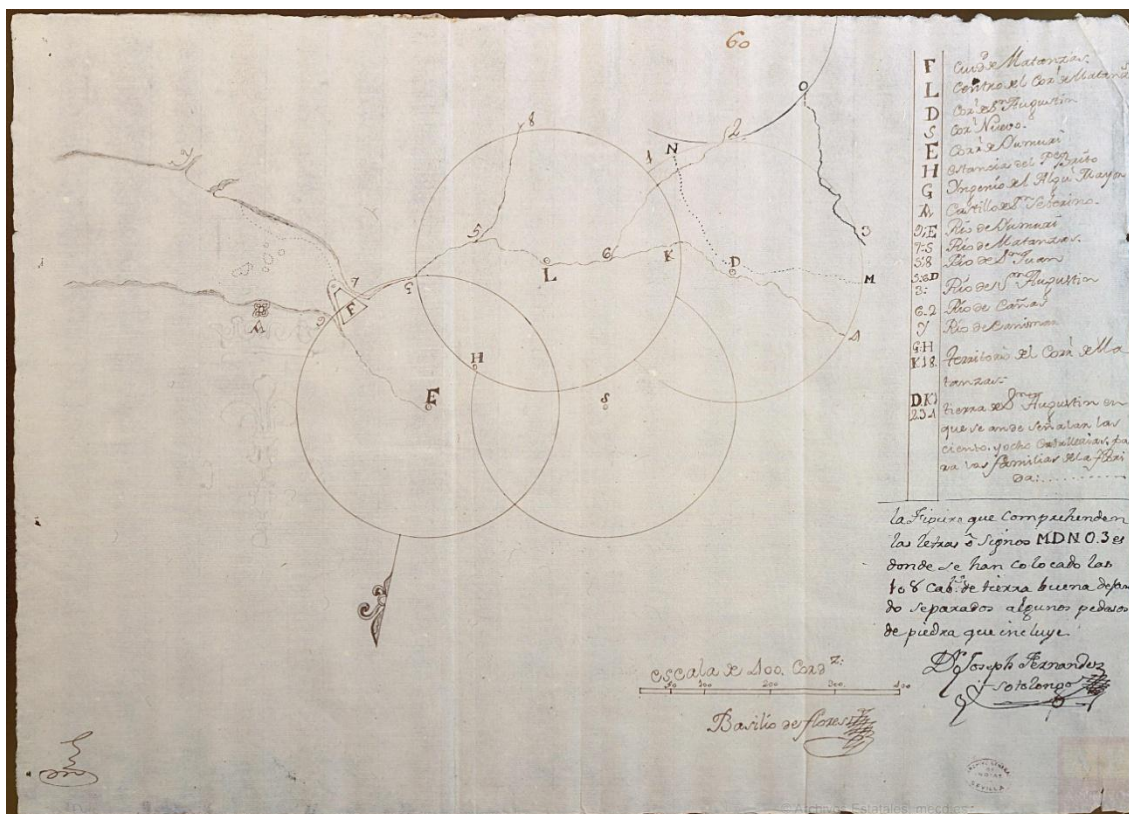 60
F Ciud. de Matanzas.
L Centro del Corl. de Matanzs.
D Corl. de Sn. Augustin
S Corl. Nuevo.
E Corl. de Yumuri
H estancia del Pen. Brito
G Yngenio del Algul. Mayor
A Castillo de Sn. Seberino.
9,E Rio de Yumuri
7-5 Rio de Matanzas.
5.8 Rio de Sn. Juan
5.6 D
3: Rio de Sn. Augustin
6-2 Rio de Cañas
Y Rio de Canimar
G.H
K.1.8. Territorio del Corl. de Ma
tanzas.
D.K.1
2.3.4 tierra de Sn. Augustin en
que se ande señalar las
ciento. y ocho Caballerias, pa
ra las familias de la flori
da:..........
la Figura que Comprehenden
las letras ó Signos M D N O. 3 es
donde se han colocado las
108 Cabs. de tierra buena dejan
do separados algunos pedasos
de piedra que incluye.
Dn. Joseph Fernandez
y Sotolongo
escala de 400. Cords.
50 100 200 300 400
Basilio de flores
O
8
2
1
N
5
L
6
K
D
M
3
4
7
F
9
A
H
E
S
ARCHIVO GENERAL
DE
INDIAS
SEVILLA
© Archivos Estatales, mecd.es